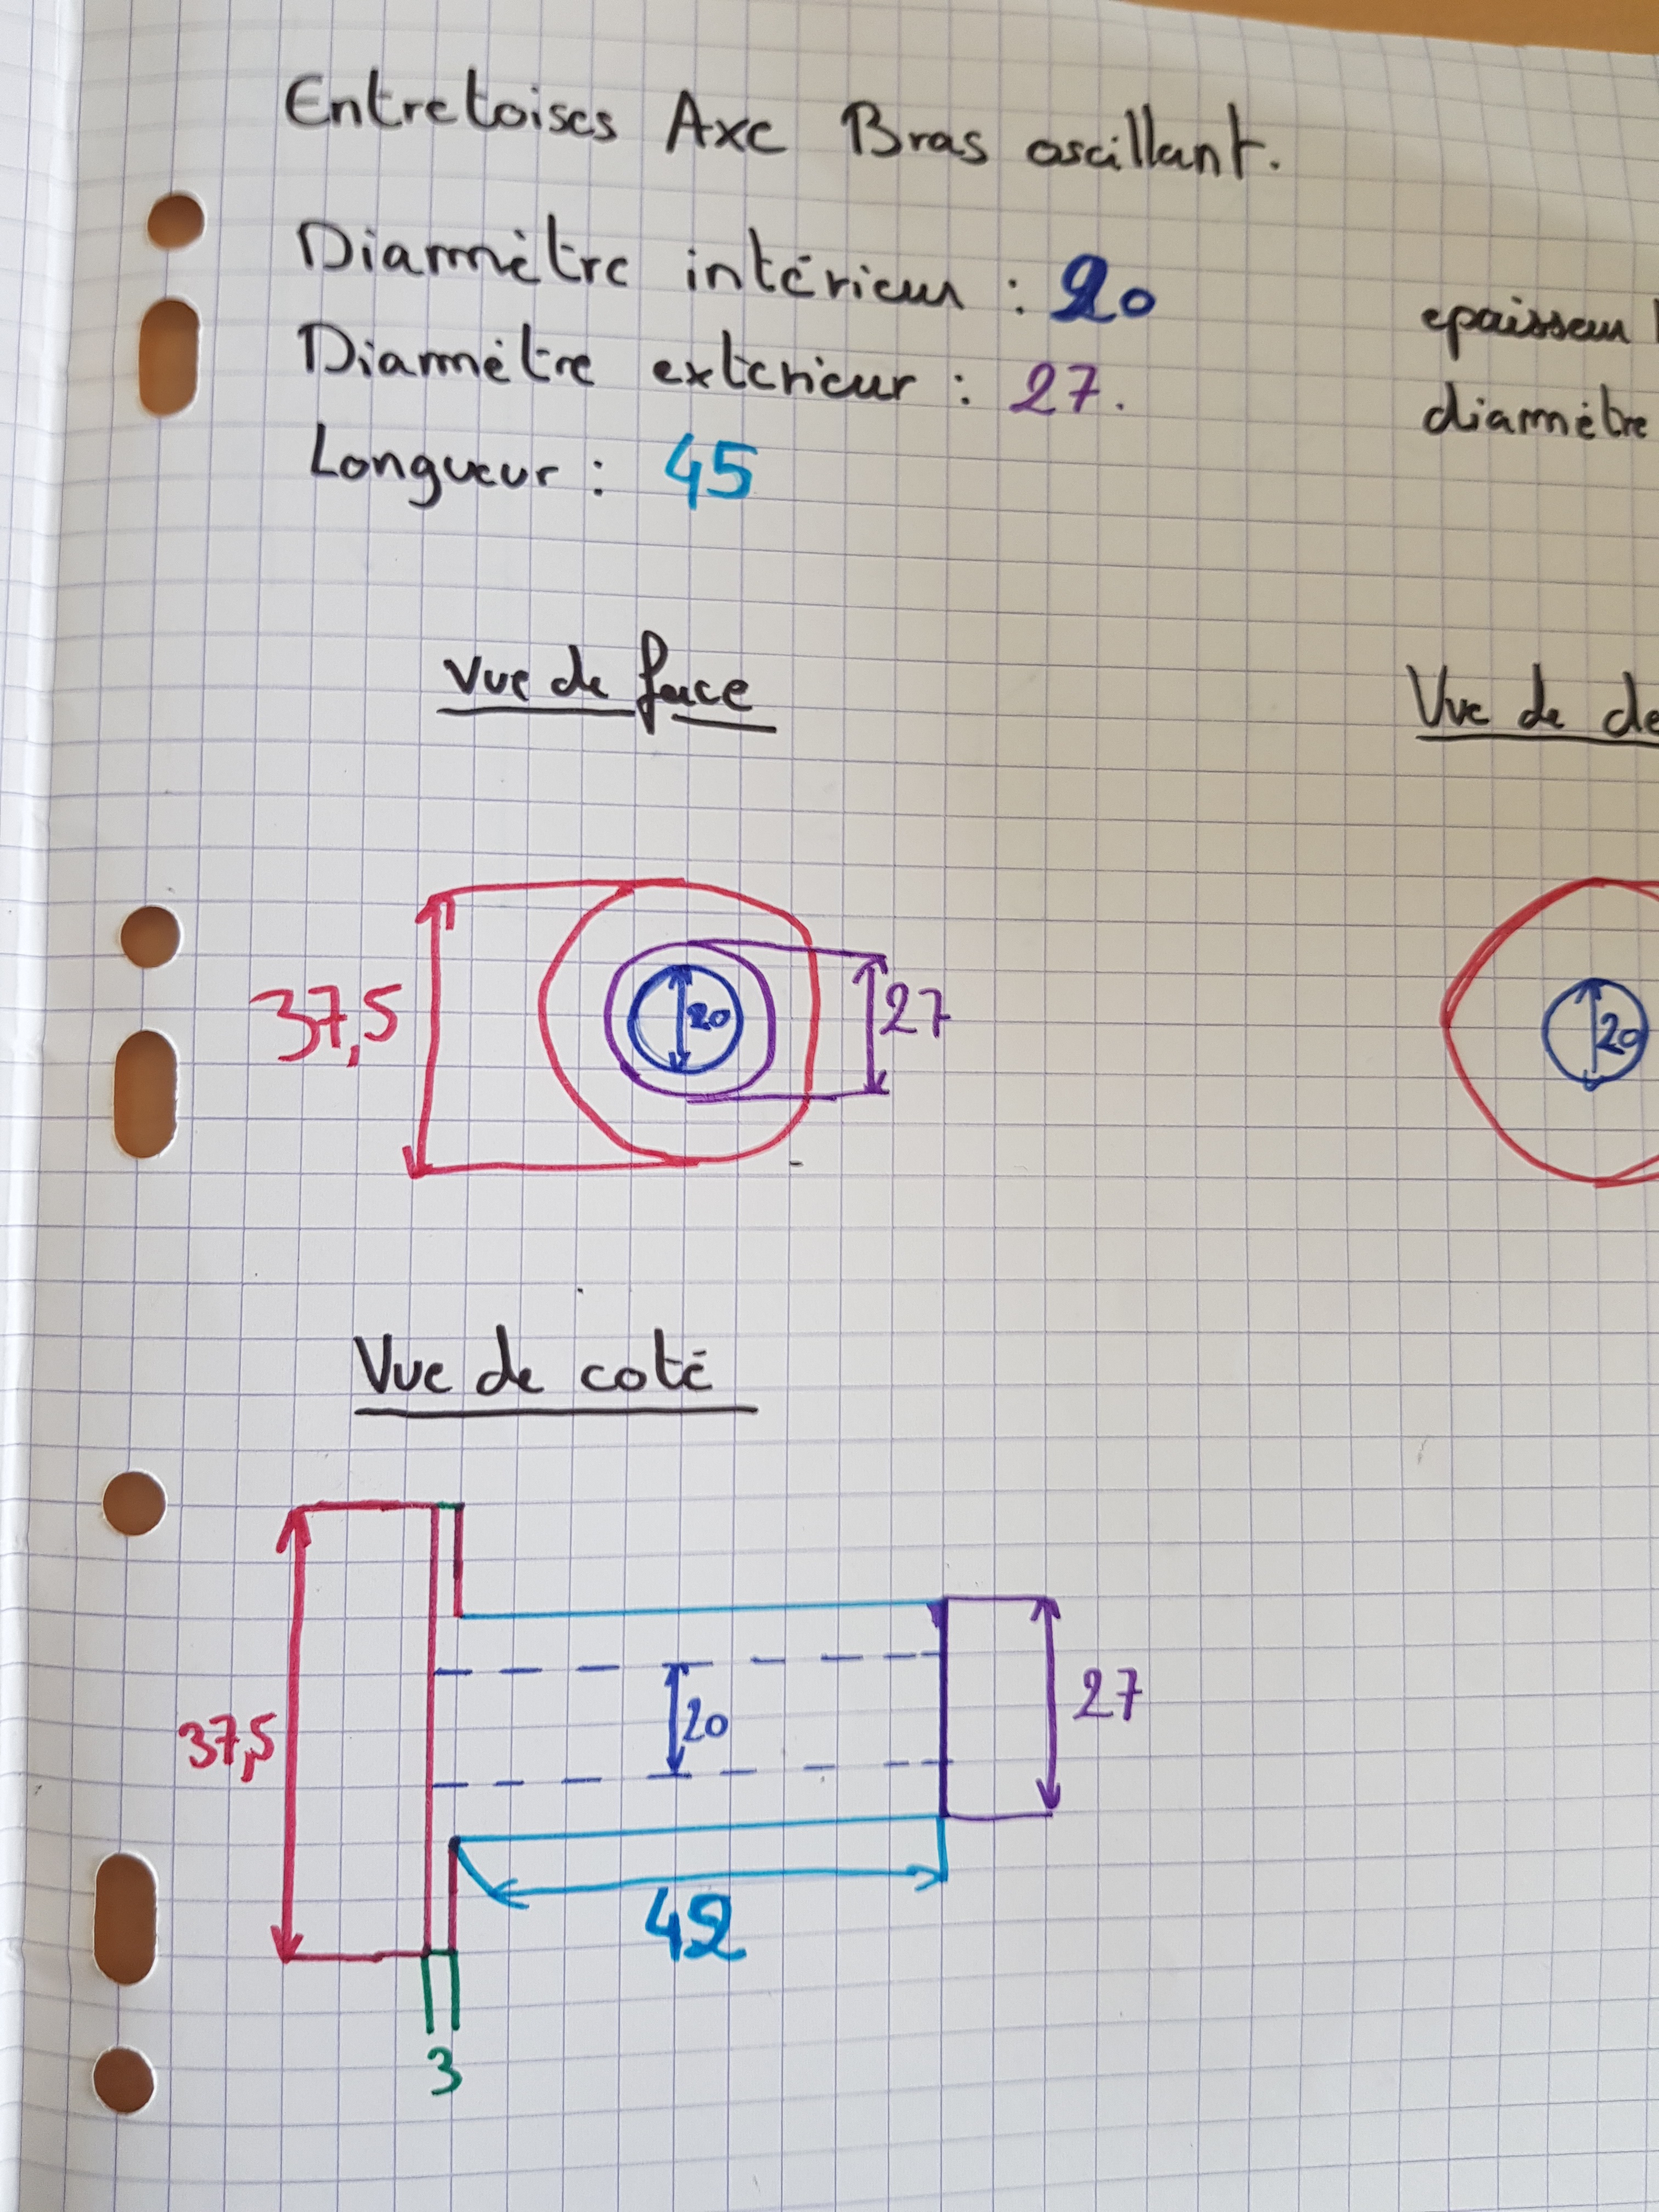 Entretoises Axe Bras oscillant.
Diamètre intérieur : 20
Diamètre extérieur : 27.
Longueur : 45
epaisseur
diamètre
Vue de face
Vue de de
37,5
20
27
20
Vue de coté
37,5
20
27
42
3